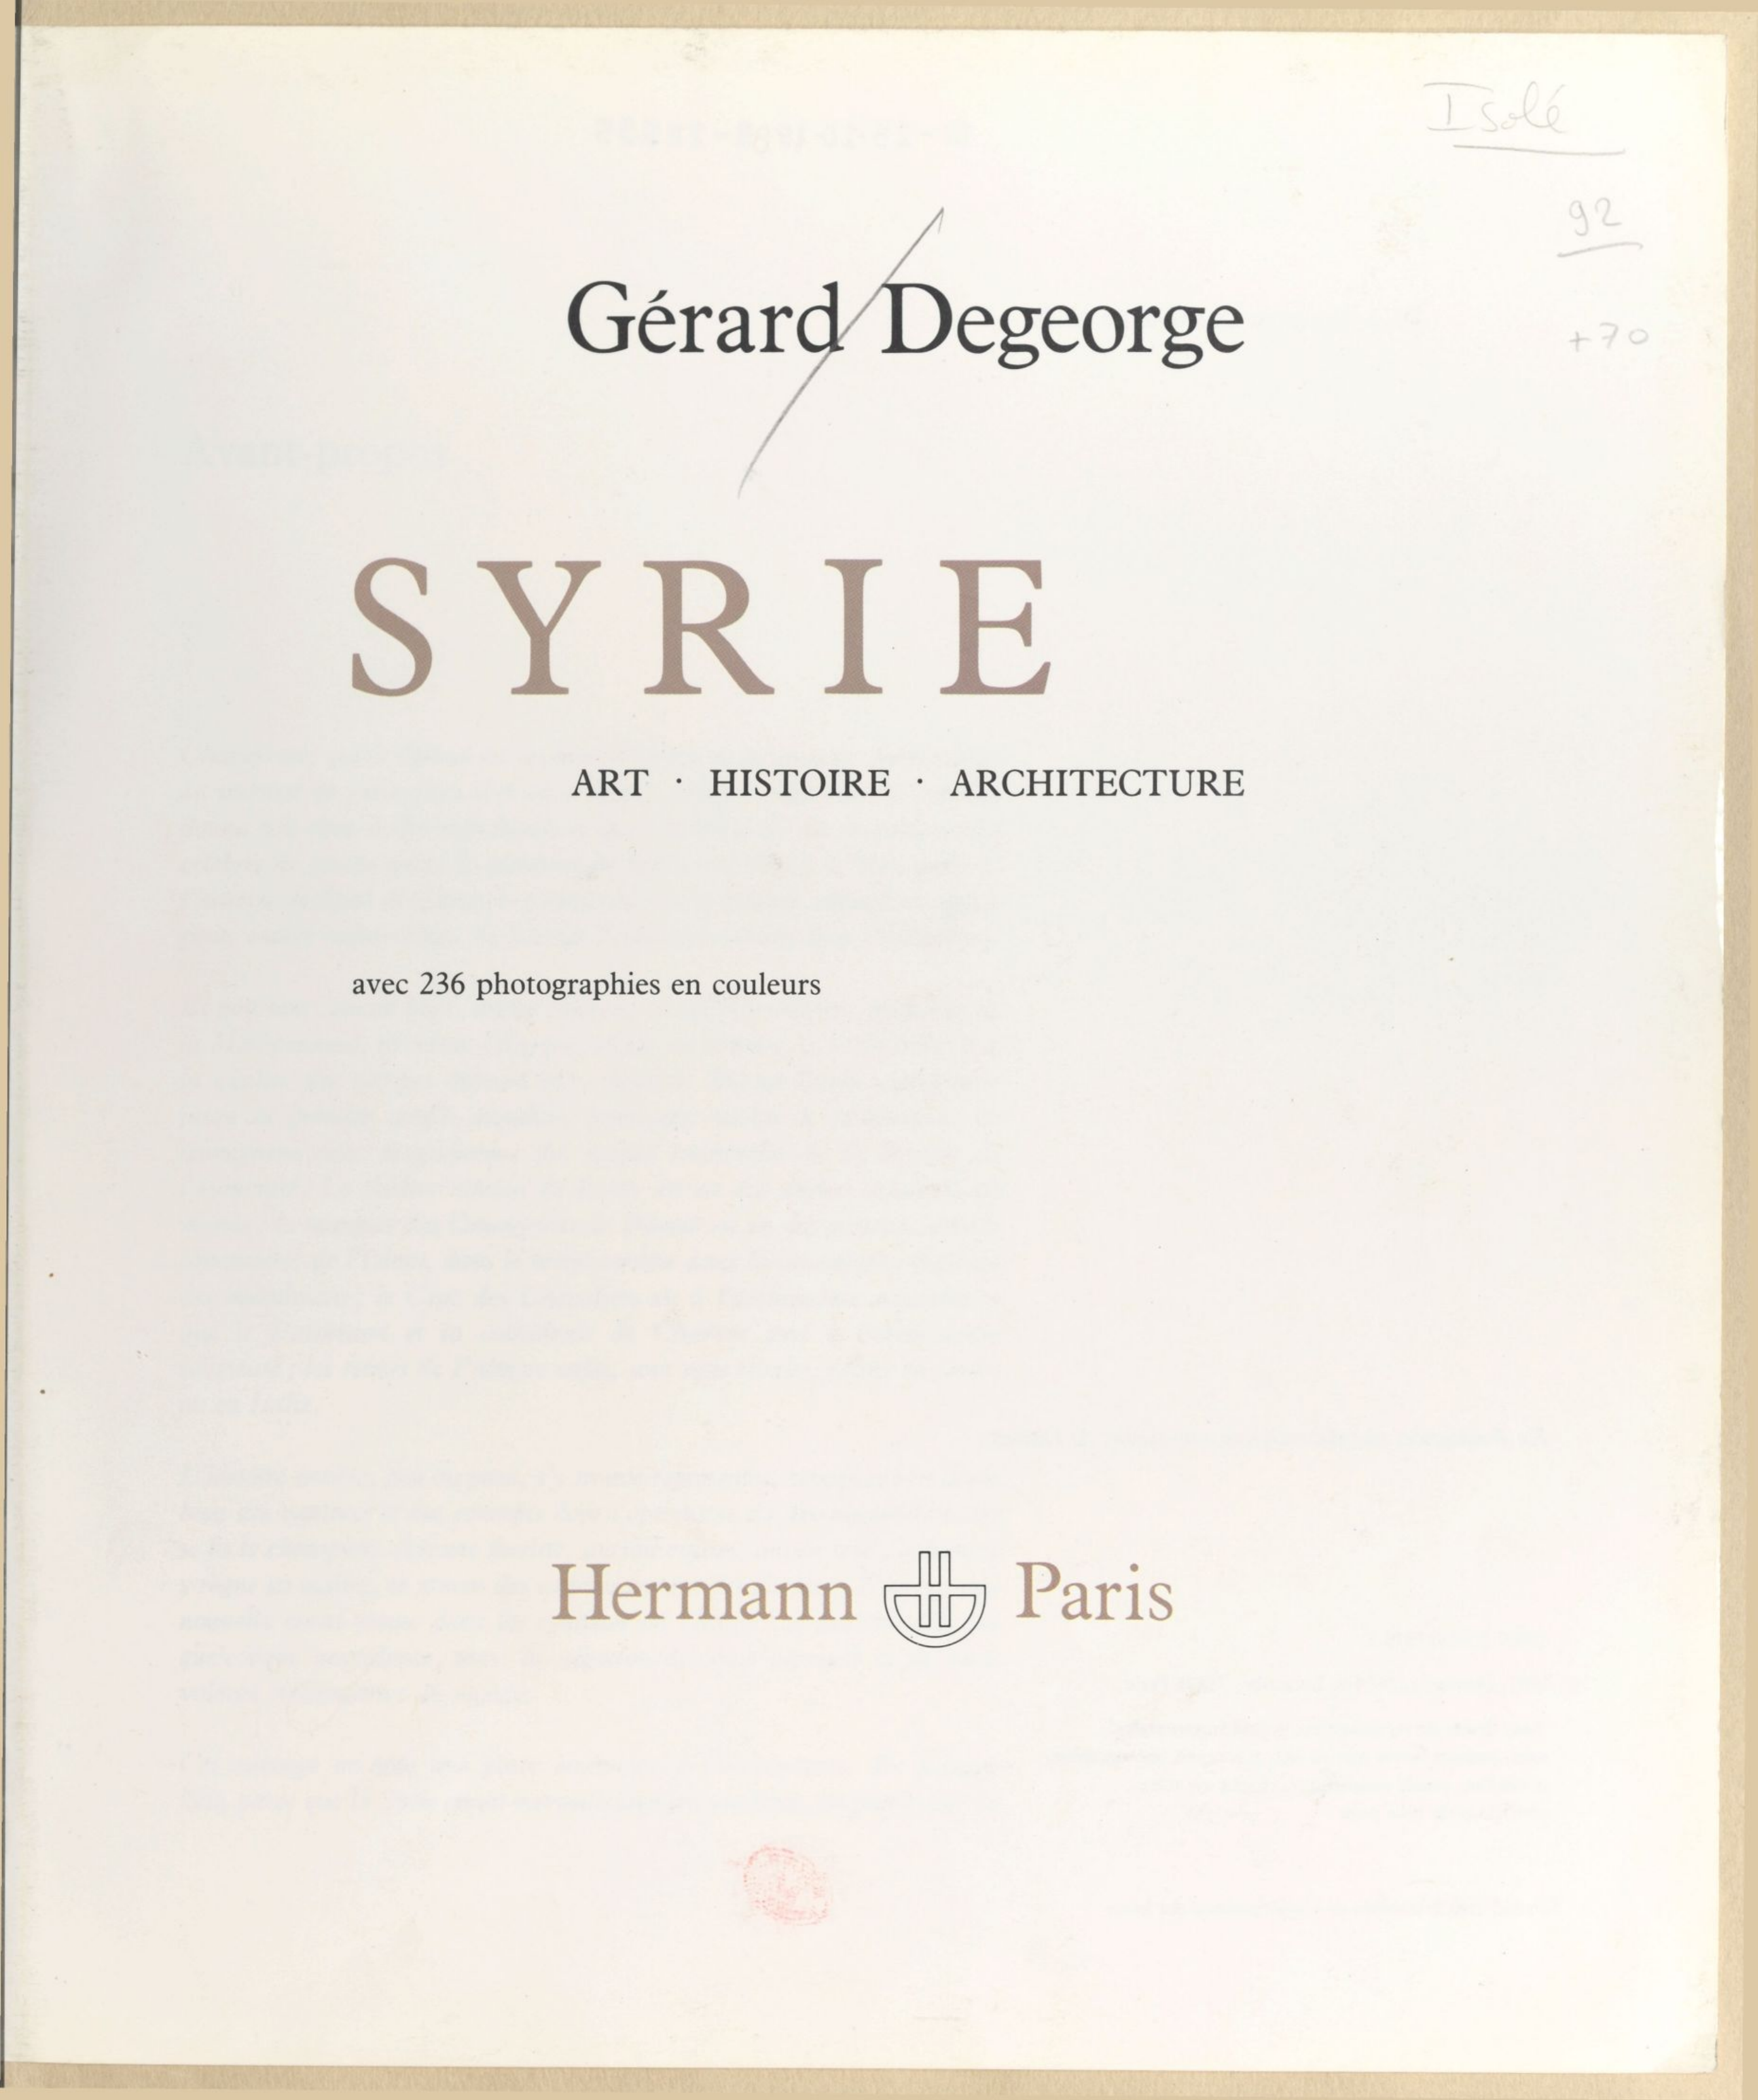 Isolé
92
+70
Gérard Degeorge
SYRIE
ART · HISTOIRE · ARCHITECTURE
avec 236 photographies en couleurs
Hermann Paris